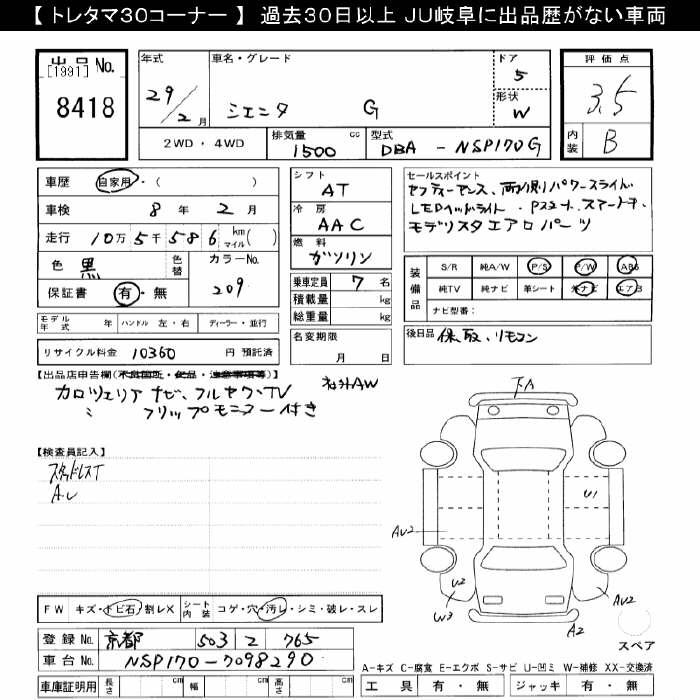 【 トレタマ30コーナー 】 過去30日以上 JU岐阜に出品歴がない車両
出品 No.
[1991]
8418
年式
29/2月
車名・グレード
シエンタ G
ドア
5
形状
W
評価点
3.5
内装 B
2WD・4WD
排気量 cc
1500
型式
DBA - NSP170G
車歴 自家用・( )
車検 8年 2月
走行 10万5千586 km マイル( )
色 黒
色替
カラーNo.
209
保証書 有・無
シフト
AT
冷房
AAC
燃料
ガソリン
乗車定員 7名
積載量 kg
総重量 kg
名変期限
月 日
セールスポイント
セフティーセンス、両側パワースライド
LEDヘッドライト、Pスタート、スマートキー
モデリスタエアロパーツ
装備品
S/R 純A/W P/S P/W ABS
純TV 純ナビ 革シート 社ナビ エアB
ナビ型番：
後日品 保、取、リモコン
モデル年式 年 ハンドル 左・右 ディーラー・並行
リサイクル料金 10360 円 預託済
【出品店申告欄(不良箇所・欠品・注意事項等)】
カロツェリアナビ、フルセグTV
フリップモニター付き
社外AW
下A
【検査員記入】
スタッドレスT
A.U
U1
AU2
U2
W3
AU2
A2
スペア
FW キズ・トビ石・割レX
シート内装 コゲ・穴・汚レ・シミ・破レ・スレ
登録No. 京都 503 む 765
車台No. NSP170-7098290
車庫証明用 長さ cm 幅 cm 高さ cm
A-キズ C-腐食 E-エクボ S-サビ U-凹ミ W-補修 XX-交換済
工具 有・無 ジャッキ 有・無